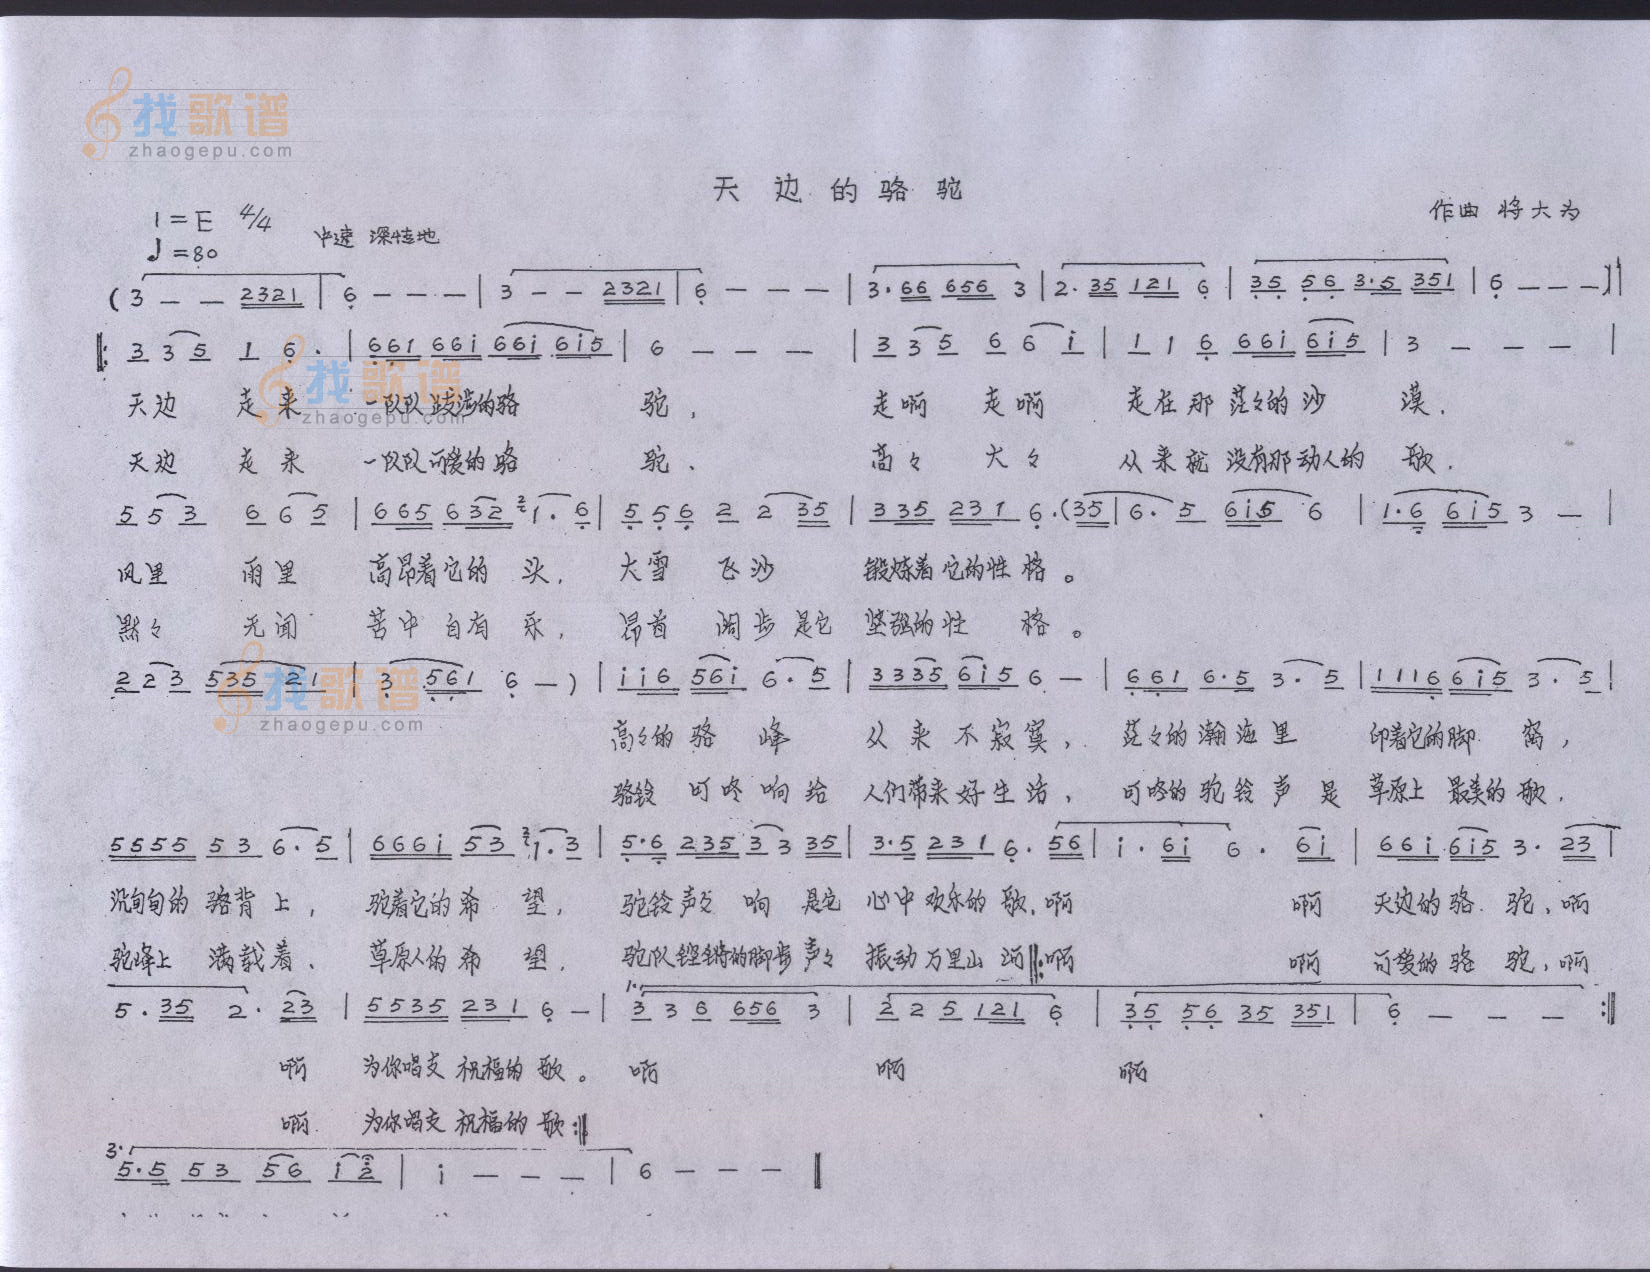 找歌谱
zhaogepu.com
天边的骆驼
1=E 4/4
♩=80 中速 深情地
作曲 将大为
(3 - - 2321 | 6 - - - | 3 - - 2321 | 6 - - - | 3·66 656 3 | 2·35 121 6 | 35 56 3·5 351 | 6 - - - )||
||: 3 35 1 6· | 661 66i 66i 6i5 | 6 - - - | 3 35 6 6 i | 1 1 6 66i 6i5 | 3 - - - |
找歌谱
zhaogepu.com
天边 走来 一队队跋涉的骆 驼, 走啊 走啊 走在那茫々的沙 漠,
天边 走来 一队队可爱的骆 驼、 高々 大々 从来就没有那动人的 歌.
5 53 6 65 | 665 632 2/1· 6 | 5 56 2 2 35 | 335 231 6·(35 | 6· 5 6i5 6 | 1·6 6i5 3 - |
风里 雨里 高昂着它的 头, 大雪 飞沙 锻炼着它的性格。
默々 无闻 苦中自有 乐, 昂首 阔步是它 坚强的性 格。
2 23 535 21 | 3 ·561 6 - ) | ii6 56i 6·5 | 3335 6i5 6 - | 661 6·5 3·5 | 1116 6i5 3·5 |
找歌谱
zhaogepu.com
高々的骆 峰 从来不寂寞, 茫々的瀚海里 印着它的脚 窝,
骆铃 叮咚响给 人们带来好生活, 叮咚的驼铃声是 草原上最美的歌.
5555 53 6·5 | 666i 53 2/1·3 | 5·6 235 33 35 | 3·5 231 6· 56 | i· 6i 6· 6i | 66i 6i5 3· 23 |
沉甸甸的 骆背上, 驼着它的希 望, 驼铃声々 响 是它 心中欢乐的歌,啊 啊 天边的骆 驼,啊
驼峰上 满载着、 草原人的希 望, 驼队铿锵的脚步声々 振动万里山河||:啊 啊 可爱的骆 驼,啊
5·35 2· 23 | 5535 231 6 - | 1· 3 3 6 656 3 | 2 2 5 121 6 | 35 56 35 351 | 6 - - - :||
啊 为你唱支祝福的歌。啊 啊 啊
啊 为你唱支祝福的歌:||
3· 5·5 53 56 i 2 | i - - - | 6 - - - ||